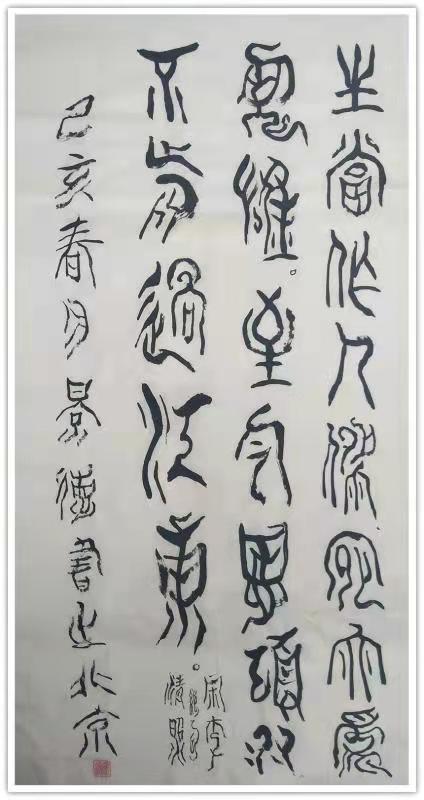 生當作人傑死亦爲
鬼雄。至今思項羽
不肯過江東。
宋李
清照
己亥春月景德書北京